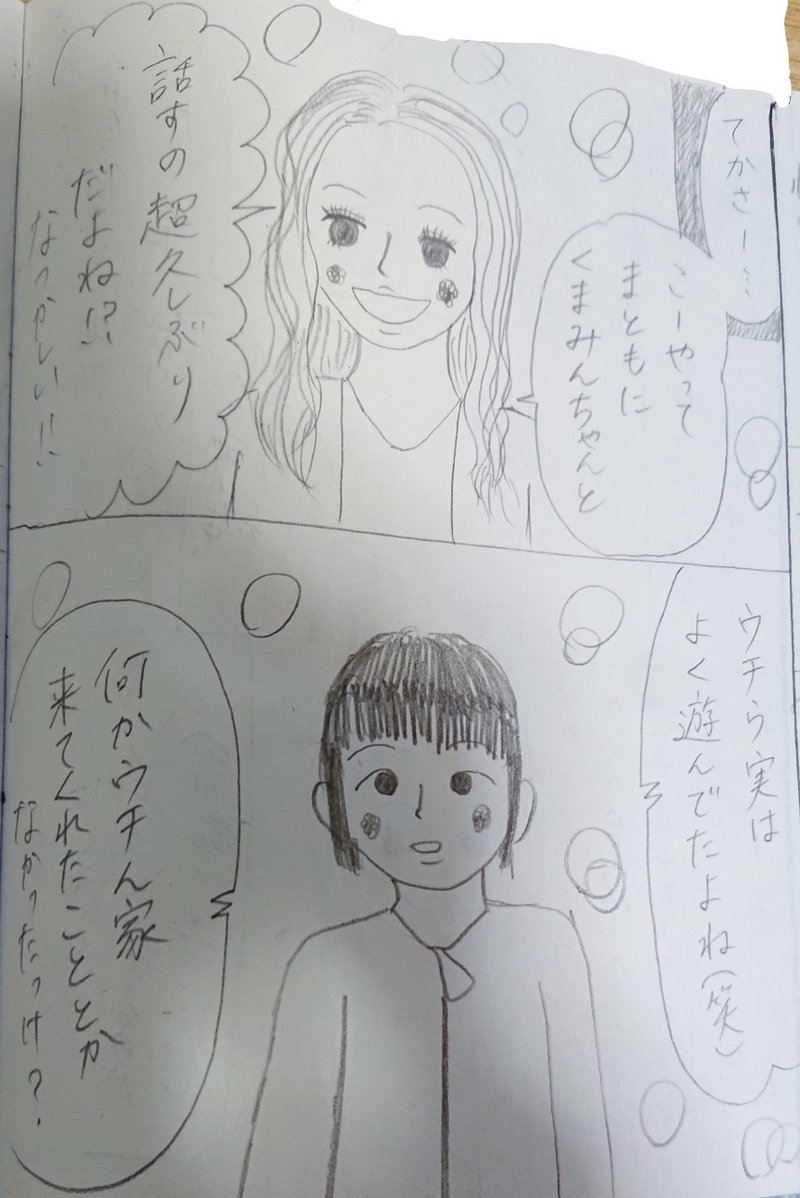 てかさー…
こーやって
まともに
くまみんちゃんと
話すの超久しぶり
だよね!?
なつかしい!!
ウチら実は
よく遊んでたよね(笑)
何かウチん家
来てくれたこととか
なかったっけ?